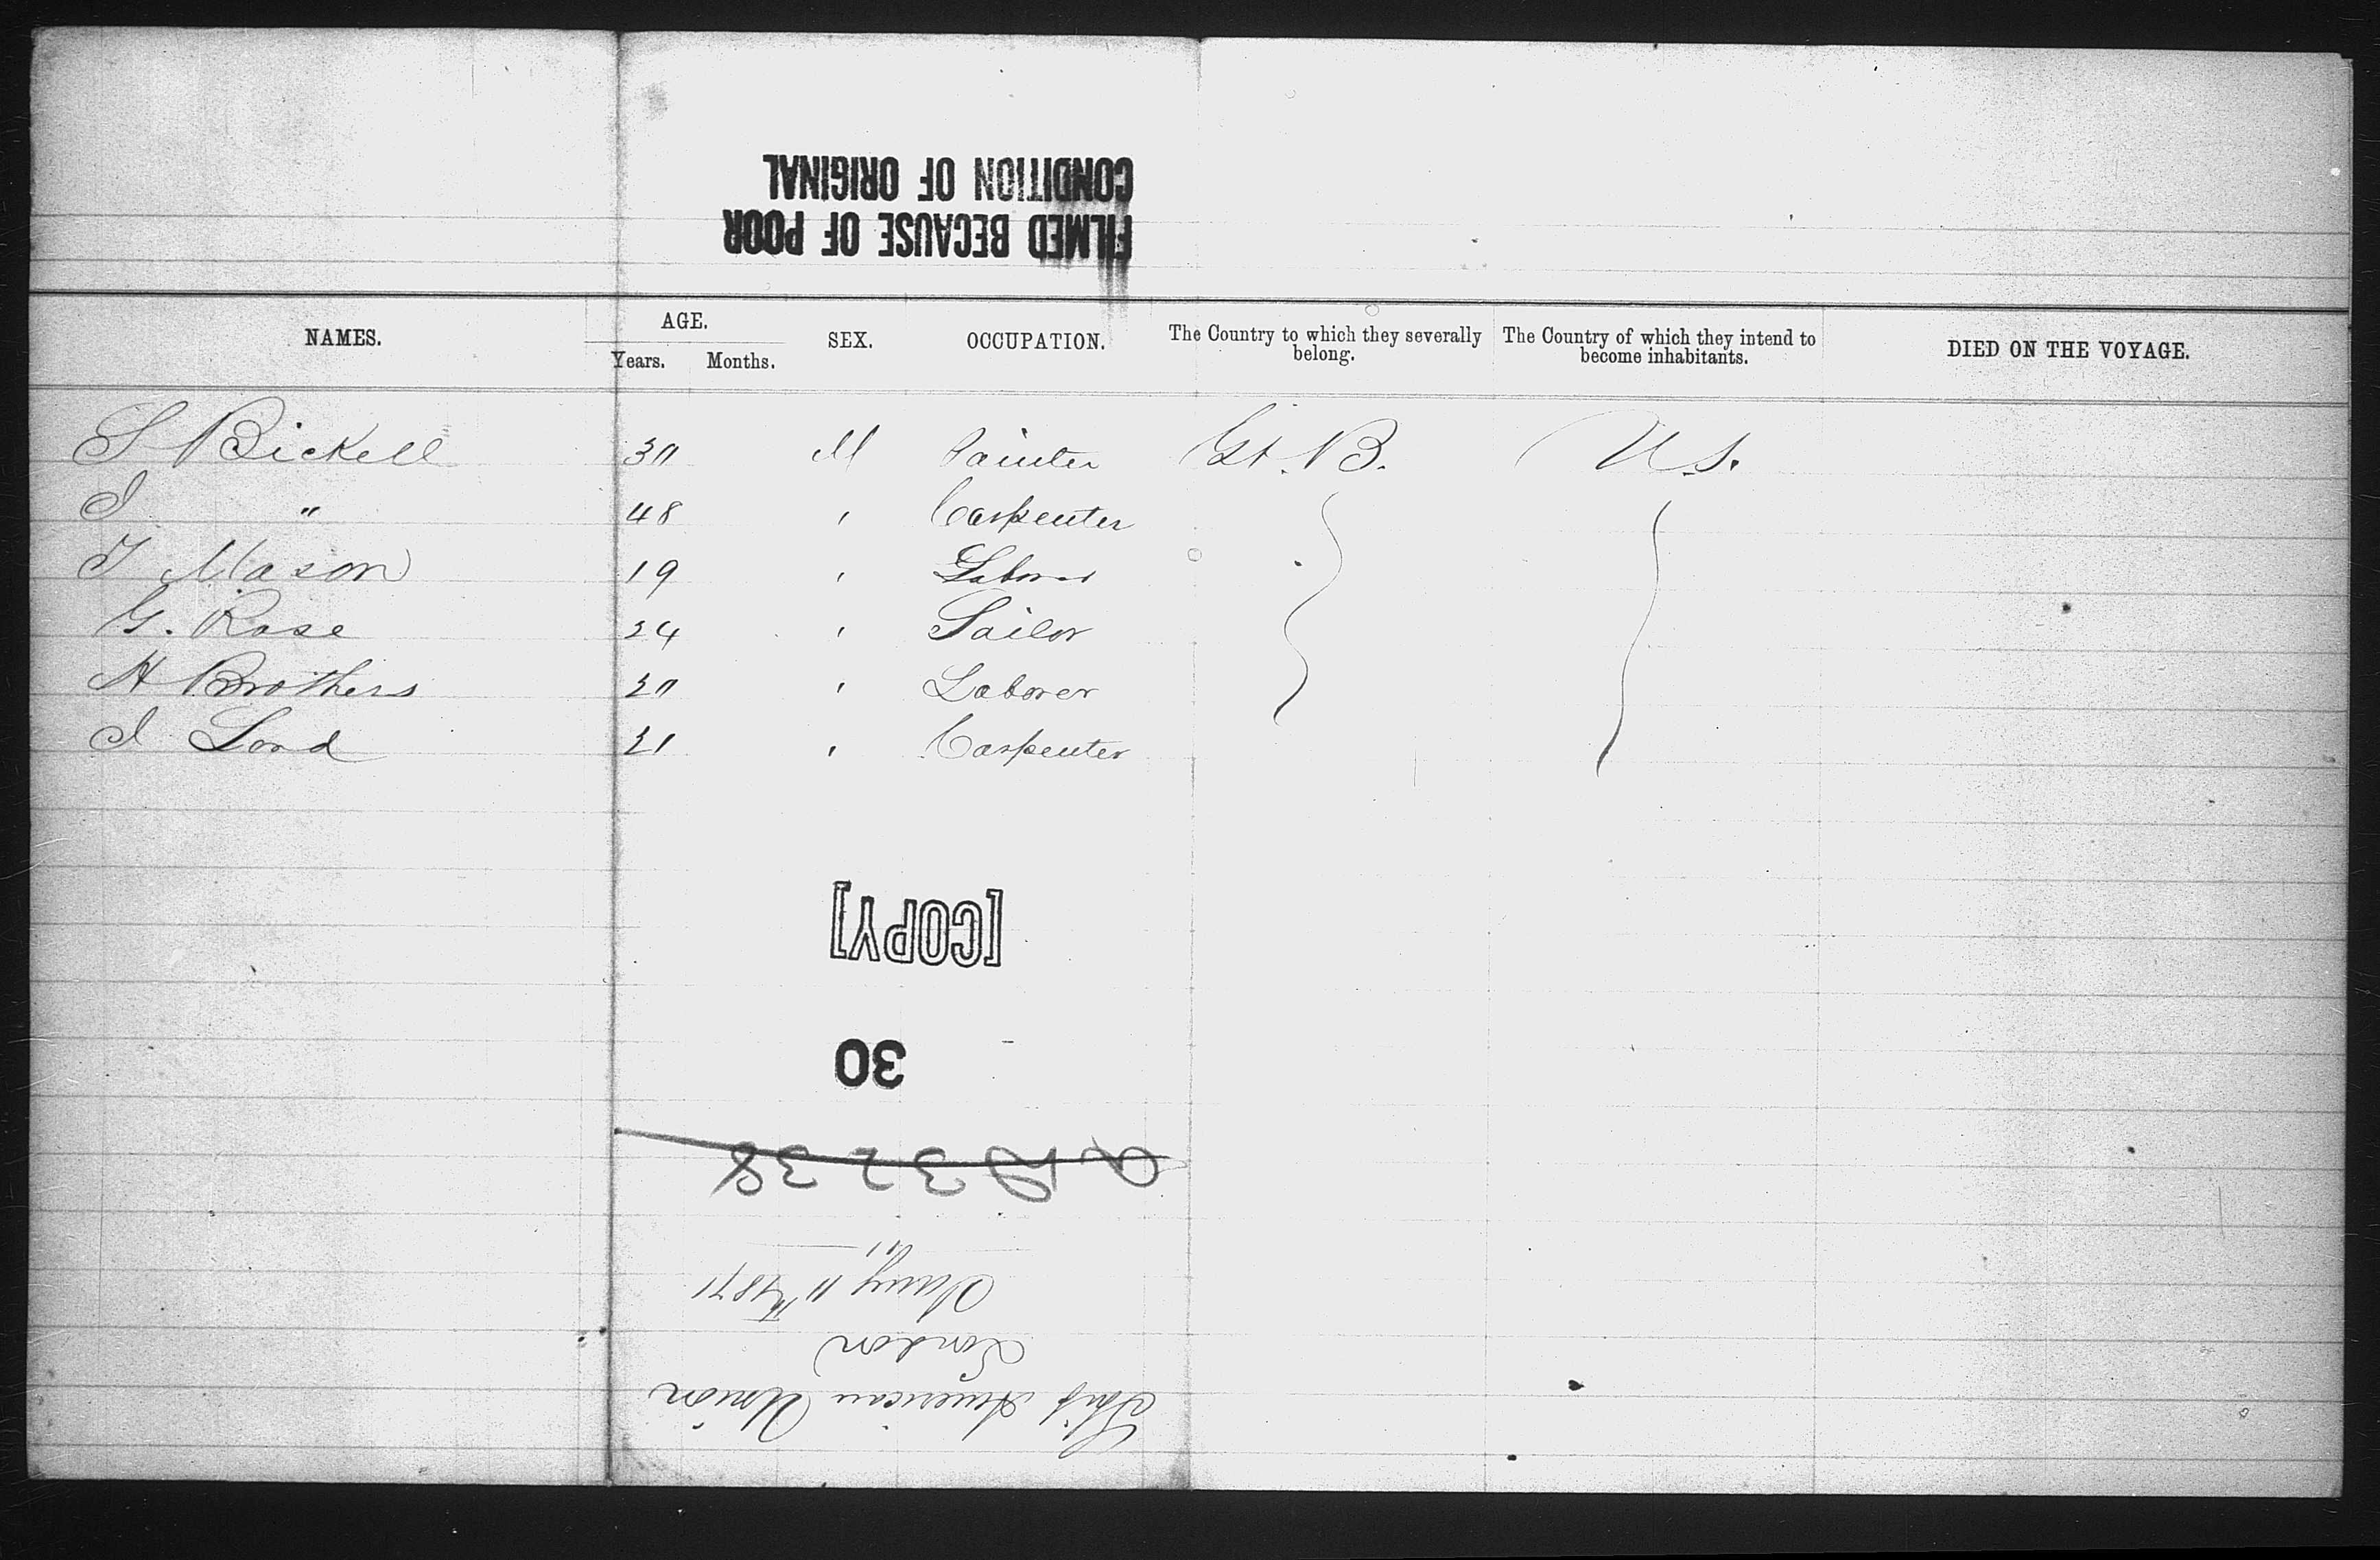 FILMED BECAUSE OF POOR
CONDITION OF ORIGINAL
NAMES. AGE. Years. Months. SEX. OCCUPATION. The Country to which they severally belong. The Country of which they intend to become inhabitants. DIED ON THE VOYAGE.
S Bickell 30 M Painter Gt. B. U.S.
J " 48 " Carpenter
T Mason 19 " Laborer
G. Rose 24 " Sailor
H Brothers 20 " Laborer
J Lord 21 " Carpenter
[COPY]
30
3238
Ship American Union
London
Jany 11th 1871